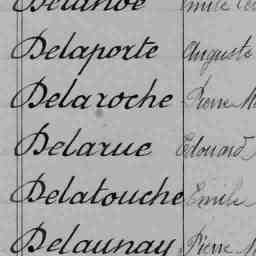 Delanoë Emile
Delaporte Auguste
Delaroche Pierre M
Delarue Edouard
Delatouche Emile
Delaunay Pierre M